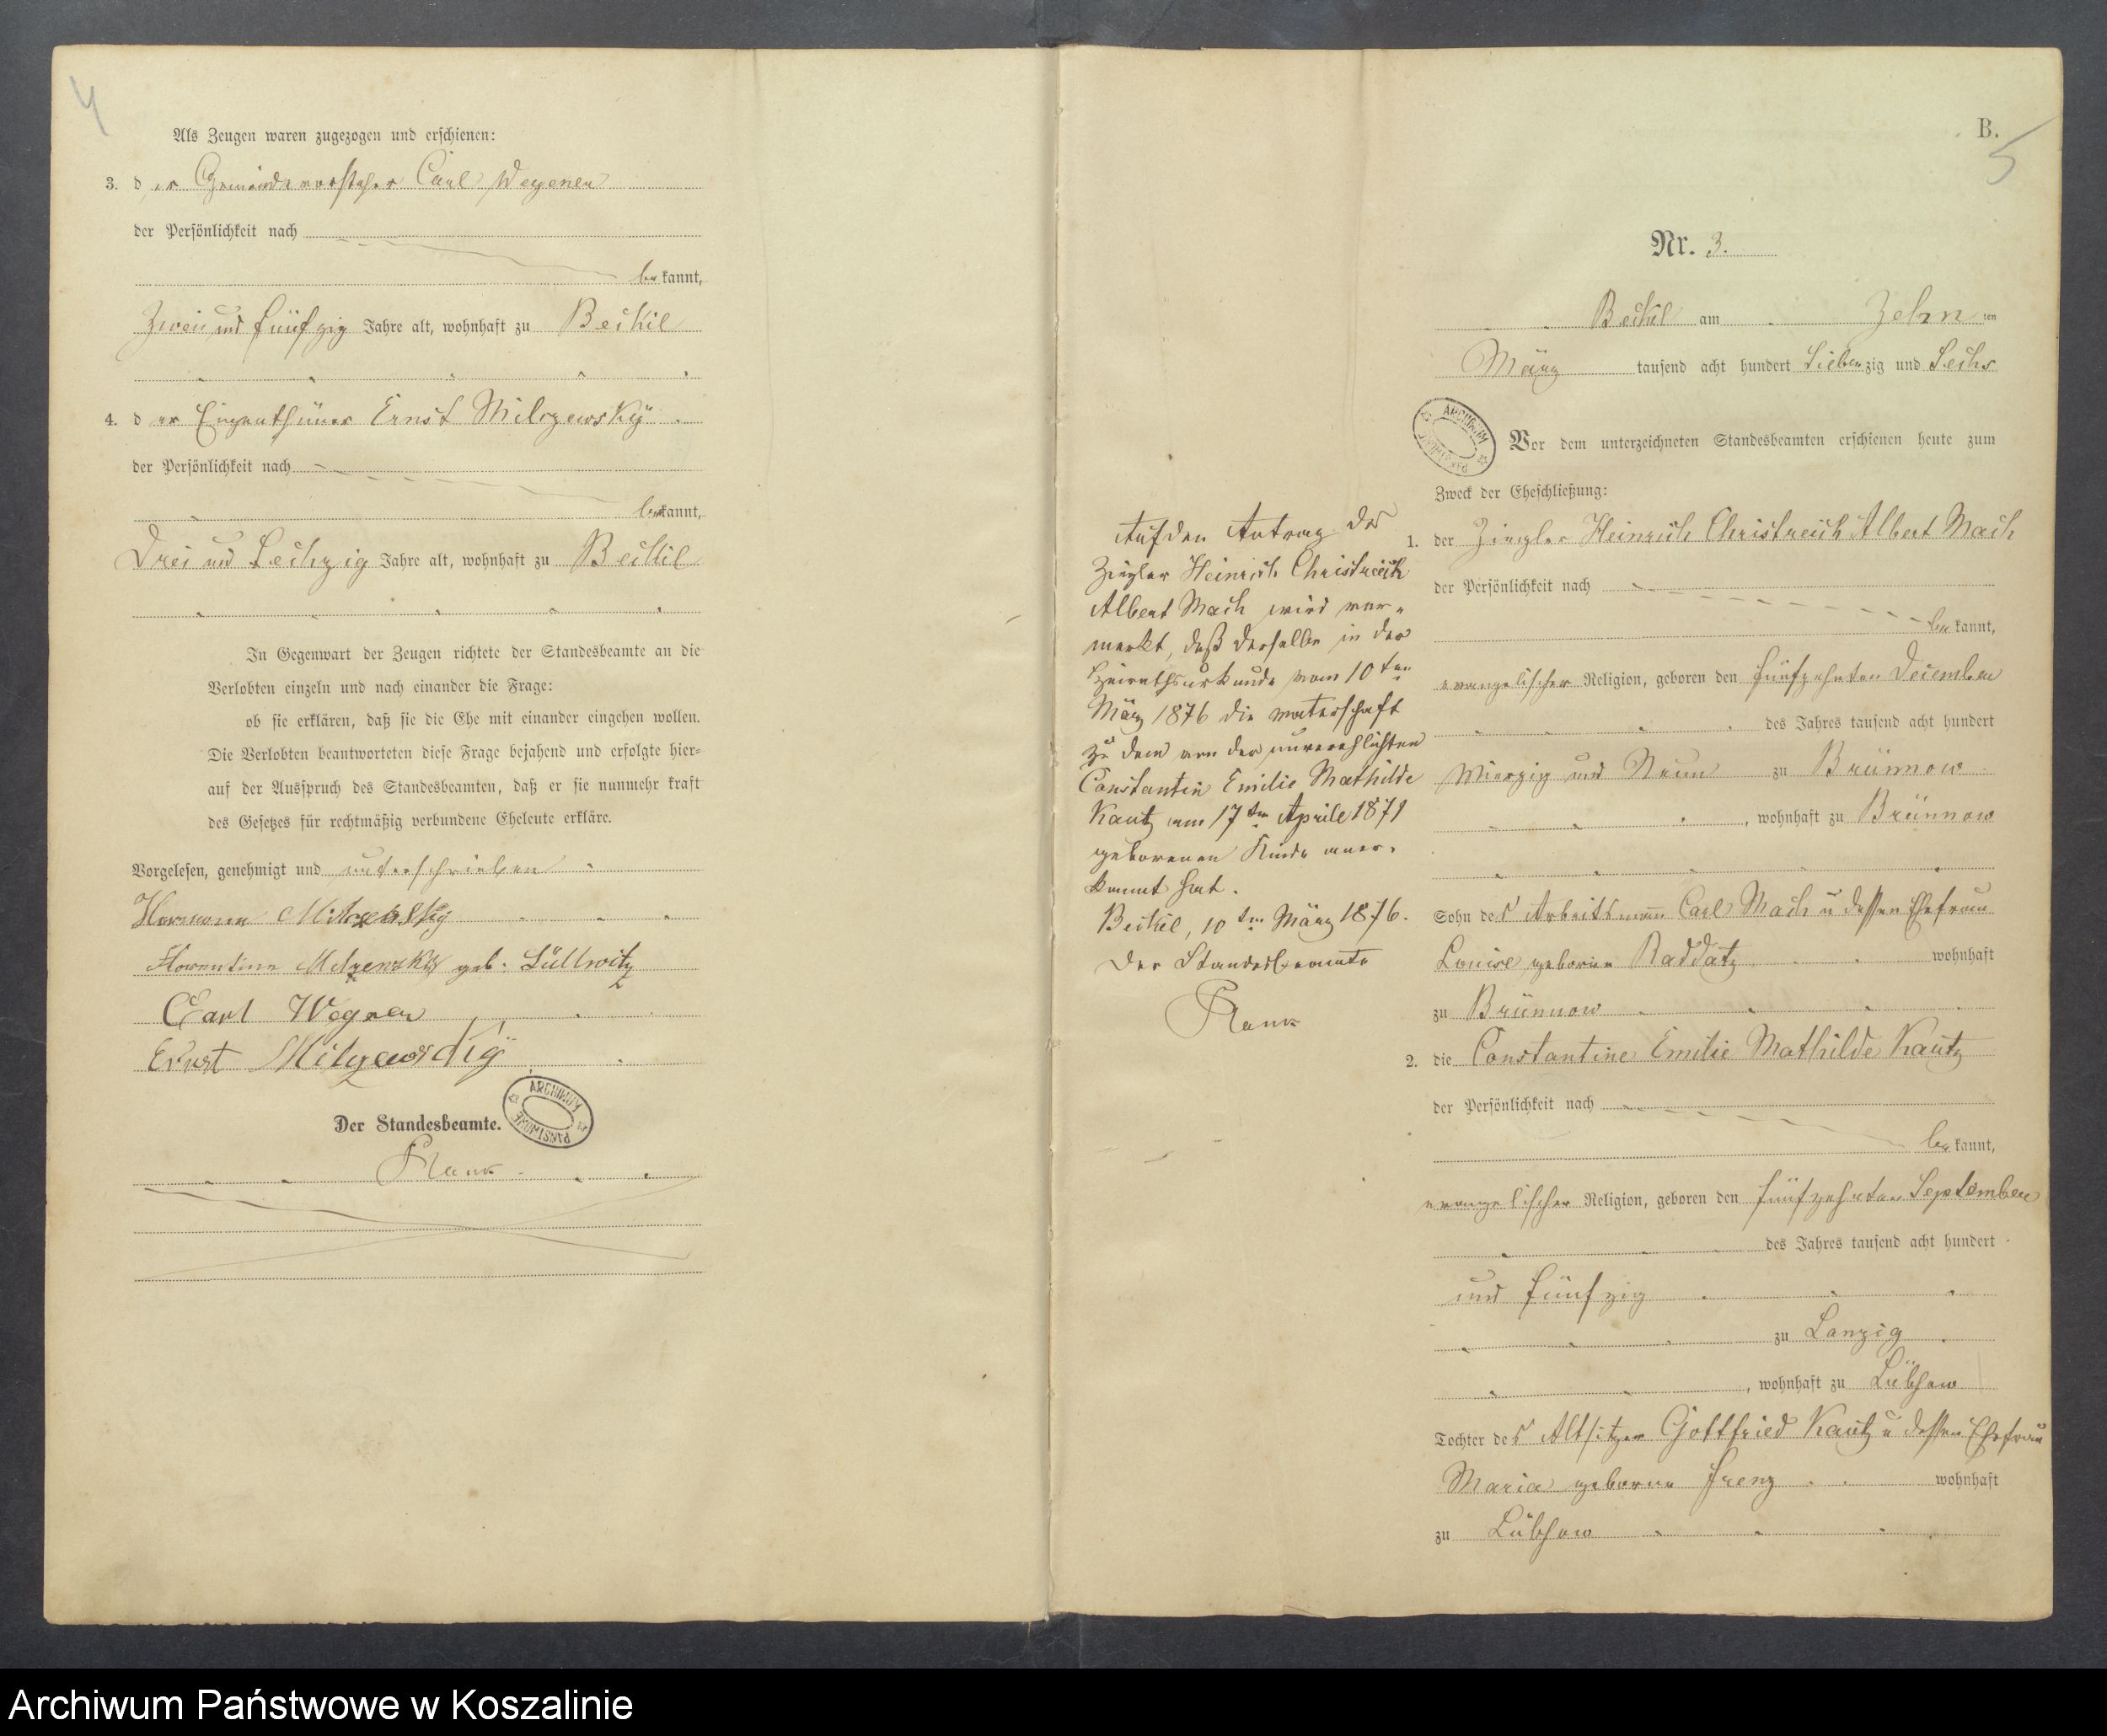 4
Als Zeugen waren zugezogen und erschienen:
3. der Gemeindevorsteher Carl Wegener
der Persönlichkeit nach
bekannt,
Zwei und fünfzig Jahre alt, wohnhaft zu Beckel
4. der Eigenthümer Ernst Milczewsky
der Persönlichkeit nach
bekannt,
Drei und Sechzig Jahre alt, wohnhaft zu Beckel
In Gegenwart der Zeugen richtete der Standesbeamte an die
Verlobten einzeln und nach einander die Frage:
ob sie erklären, daß sie die Ehe mit einander eingehen wollen.
Die Verlobten beantworteten diese Frage bejahend und erfolgte hier=
auf der Ausspruch des Standesbeamten, daß er sie nunmehr kraft
des Gesetzes für rechtmäßig verbundene Eheleute erkläre.
Vorgelesen, genehmigt und unterschrieben
Hermann
Florentine geb. Lüllwitz
Carl Wegner
Ernst
Der Standesbeamte.
ARCHIWUM PAŃSTWOWE
B.
5
Nr. 3.
Beckel am Zehnten
März tausend acht hundert Siebenzig und Sechs
ARCHIWUM PAŃSTWOWE
Vor dem unterzeichneten Standesbeamten erschienen heute zum
Zweck der Eheschließung:
1. der Ziegler Heinrich Christreich Albert Mach
der Persönlichkeit nach
bekannt,
evangelischer Religion, geboren den fünfzehnten December
des Jahres tausend acht hundert
Vierzig und Neun zu Brünnow
, wohnhaft zu Brünnow
Sohn des Arbeitsmann Carl Mach u dessen Ehefrau
Louise geborne Raddatz wohnhaft
zu Brünnow
2. die Constantine Emilie Mathilde Kautz
der Persönlichkeit nach
bekannt,
evangelischer Religion, geboren den fünfzehnten September
des Jahres tausend acht hundert
und fünfzig
zu Lanzig
, wohnhaft zu Lübzow
Tochter des Altsitzer Gottfried Kautz u dessen Ehefrau
Maria geborne Frenz wohnhaft
zu Lübzow
Auf den Antrag des
Ziegler Heinrich Christreich
Albert Mach wird ver=
merkt, daß derselbe in der
Heirathsurkunde vom 10ten
März 1876 die Vaterschaft
zu dem von der unverehlichten
Constantin Emilie Mathilde
Kautz am 17ten Aprile 1871
geborenen Kinde aner=
kannt hat.
Beckel, 10ten März 1876.
Der Standesbeamte
Archiwum Państwowe w Koszalinie